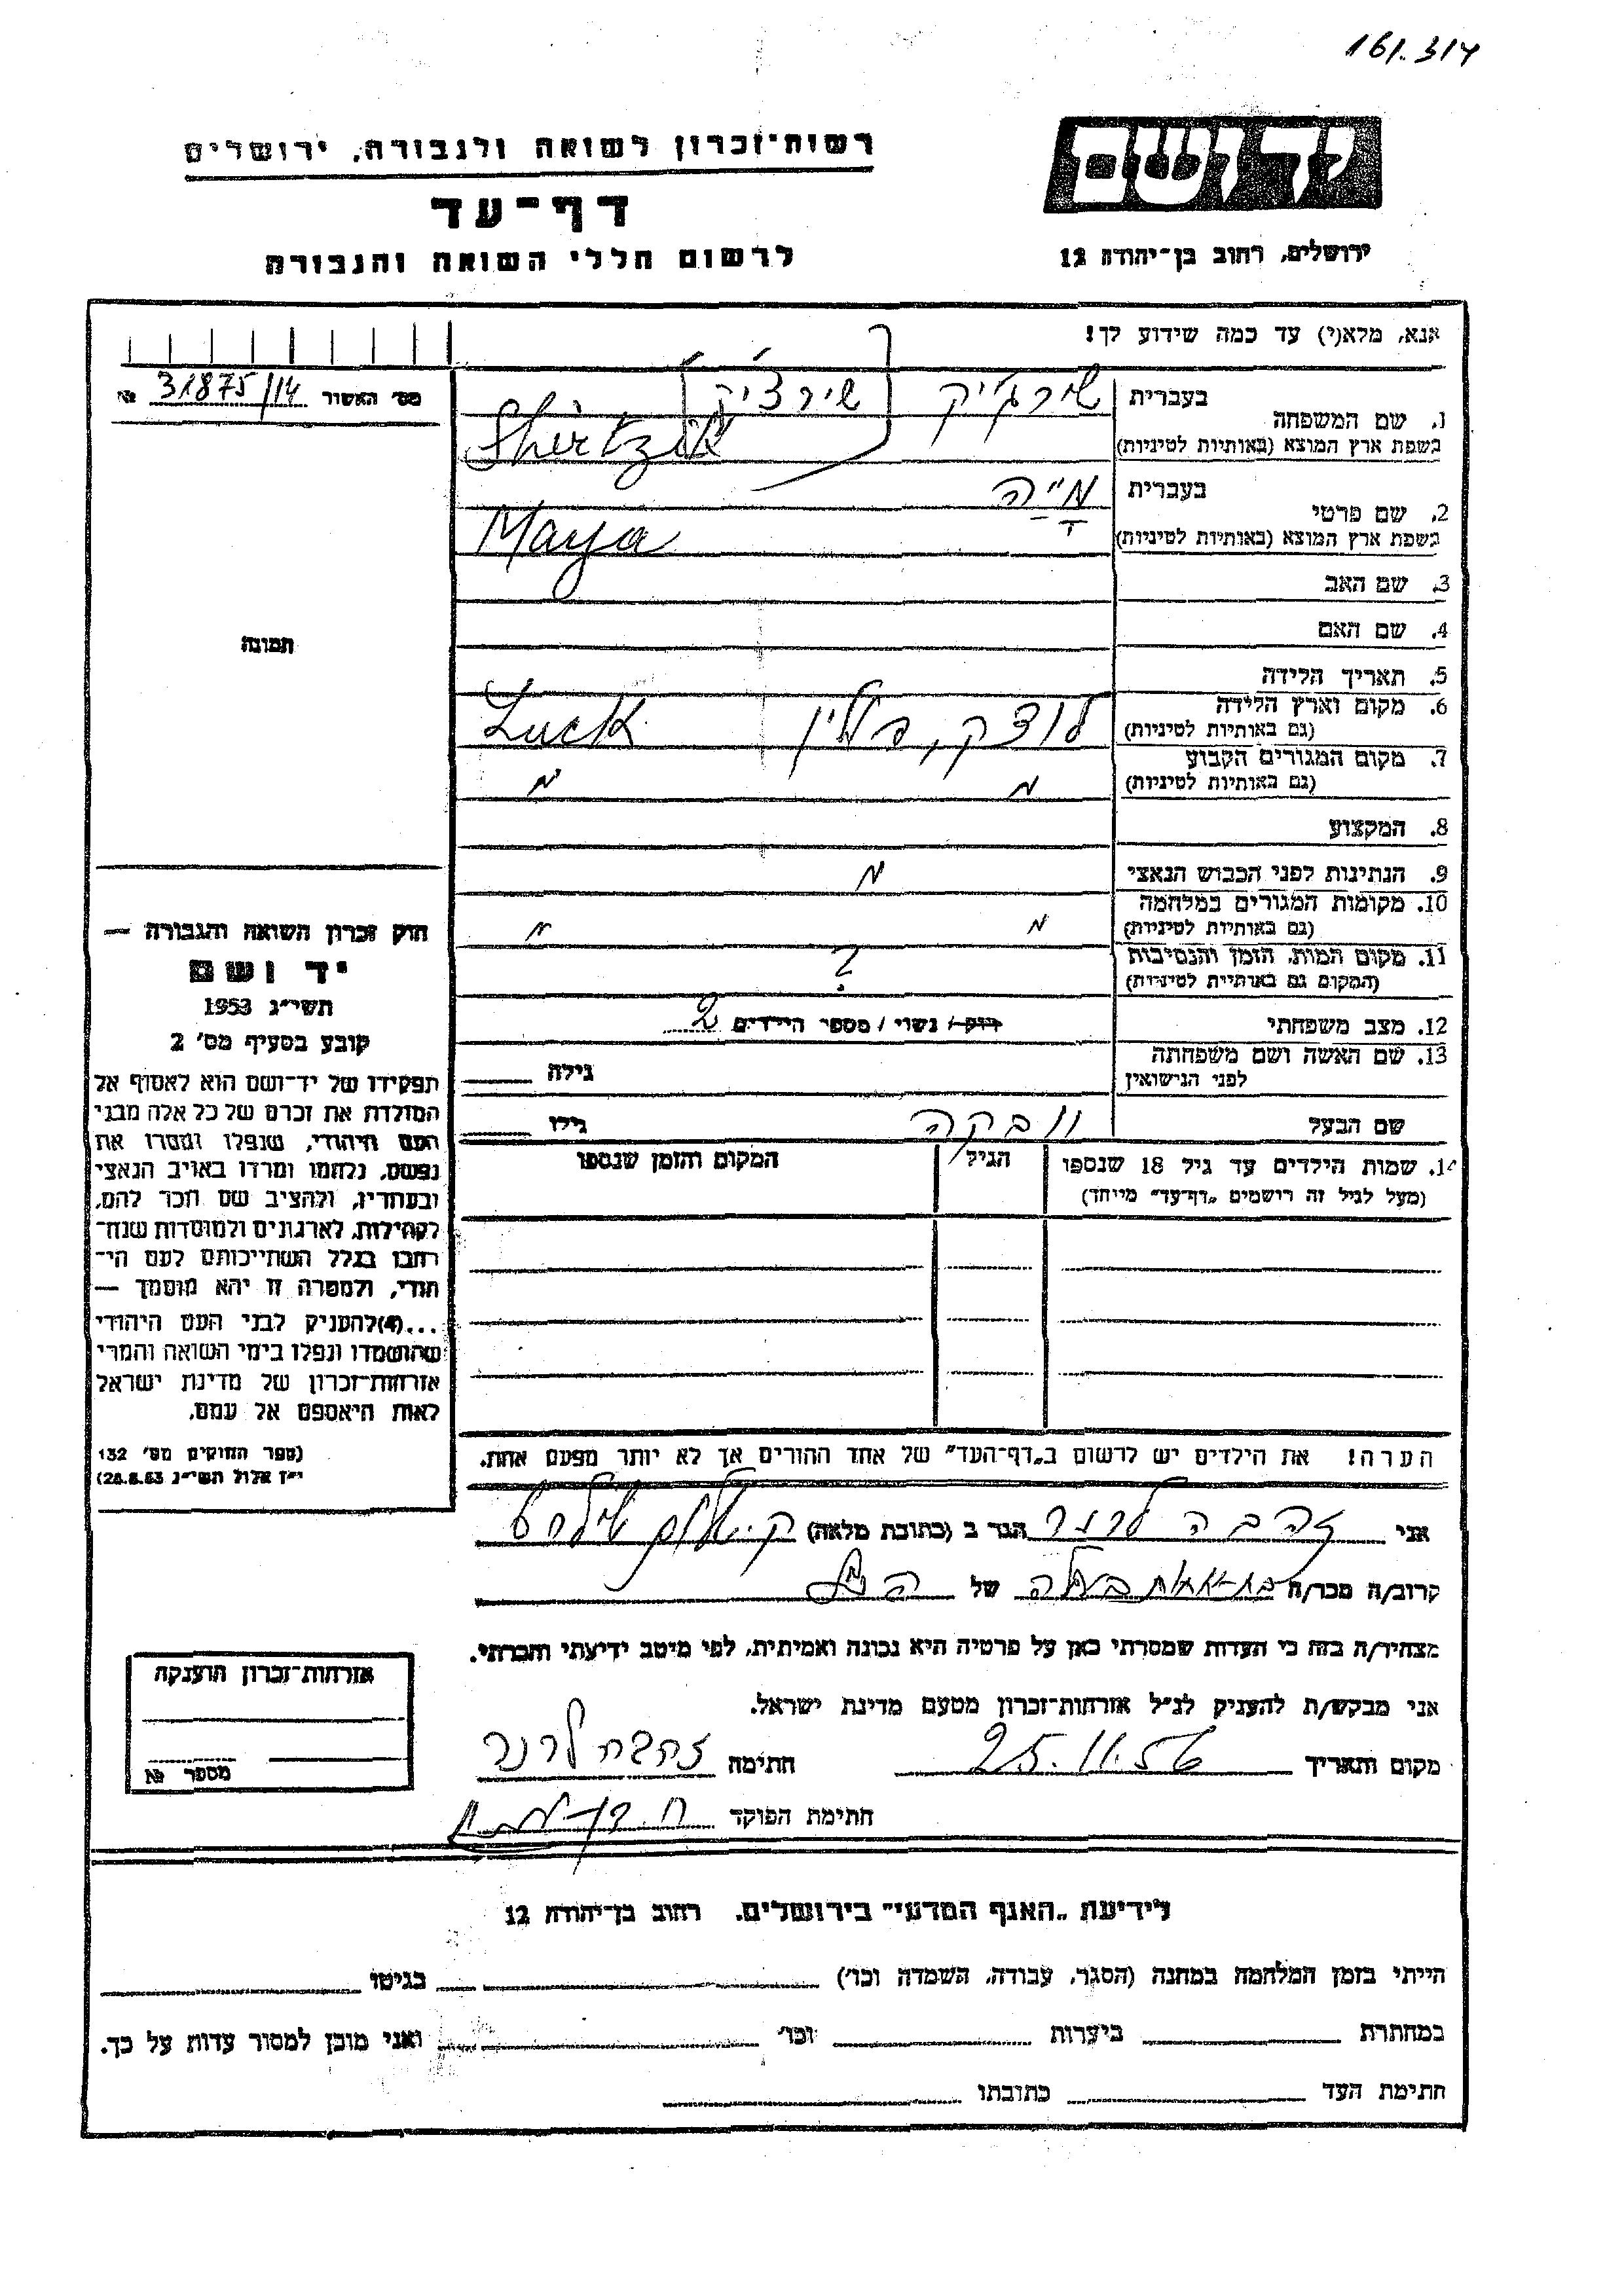 161.314
יד ושם
רשות־זכרון לשואה ולגבורה, ירושלים
דף־עד
לרשום חללי השואה והגבורה
ירושלים, רחוב בן־יהודה 12
אנא, מלא(י) עד כמה שידוע לך!
מס׳ האשור 31875/14 №
1. שם המשפחה
בעברית
שירצ׳יק
בשפת ארץ המוצא (באותיות לטיניות)
Shirtzik
2. שם פרטי
בעברית מייה
בשפת ארץ המוצא (באותיות לטיניות) Maya
3. שם האב
4. שם האם
תמונה
5. תאריך הלידה
6. מקום וארץ הלידה
(גם באותיות לטיניות)
לוצק, פולין Luck
7. מקום המגורים הקבוע
(גם באותיות לטיניות)
8. המקצוע
9. הנתינות לפני הכבוש הנאצי
10. מקומות המגורים במלחמה
(גם באותיות לטיניות)
11. מקום המות, הזמן והנסיבות
(המקום גם באותיות לטיניות)
?
12. מצב משפחתי רוק / נשוי / מספר הילדים 2
13. שם האשה ושם משפחתה
לפני הנישואין
גילה
שם הבעל וובקה גילו
14. שמות הילדים עד גיל 18 שנספו
(מעל לגיל זה רושמים „דף־עד” מיוחד)
הגיל
המקום והזמן שנספו
הערה! את הילדים יש לרשום ב„דף־העד” של אחד ההורים אך לא יותר מפעם אחת.
חוק זכרון השואה והגבורה —
יד ושם
תשי״ג 1953
קובע בסעיף מס׳ 2
תפקידו של יד־ושם הוא לאסוף אל
המולדת את זכרם של כל אלה מבני
העם היהודי, שנפלו ומסרו את
נפשם, נלחמו ומרדו באויב הנאצי
ובעוזריו, ולהציב שם וזכר להם,
לקהילות, לארגונים ולמוסדות שנח־
רבו בגלל השתייכותם לעם הי־
הודי, ולמטרה זו יהא מוסמך —
...(4)להעניק לבני העם היהודי
שהושמדו ונפלו בימי השואה והמרי
אזרחות־זכרון של מדינת ישראל
לאות היאספם אל עמם.
(ספר החוקים מס׳ 132
י״ז אלול תשי״ג 28.8.53)
אני זהבה לרנר הגר ב (כתובת מלאה)
קרוב/ה מכר/ה של
מצהיר/ה בזה כי העדות שמסרתי כאן על פרטיה היא נכונה ואמיתית, לפי מיטב ידיעתי והכרתי.
אני מבקש/ת להעניק לנ״ל אזרחות־זכרון מטעם מדינת ישראל.
מקום ותאריך 25.11.56 חתימה זהבה לרנר
חתימת הפוקד
אזרחות־זכרון הוענקה
מספר №
לידיעת „האגף המדעי” בירושלים. רחוב בן־יהודה 12
הייתי בזמן המלחמה במחנה (הסגר, עבודה, השמדה וכו׳) בגיטו
במחתרת ביערות וכו׳ ואני מוכן למסור עדות על כך.
חתימת העד כתובתו